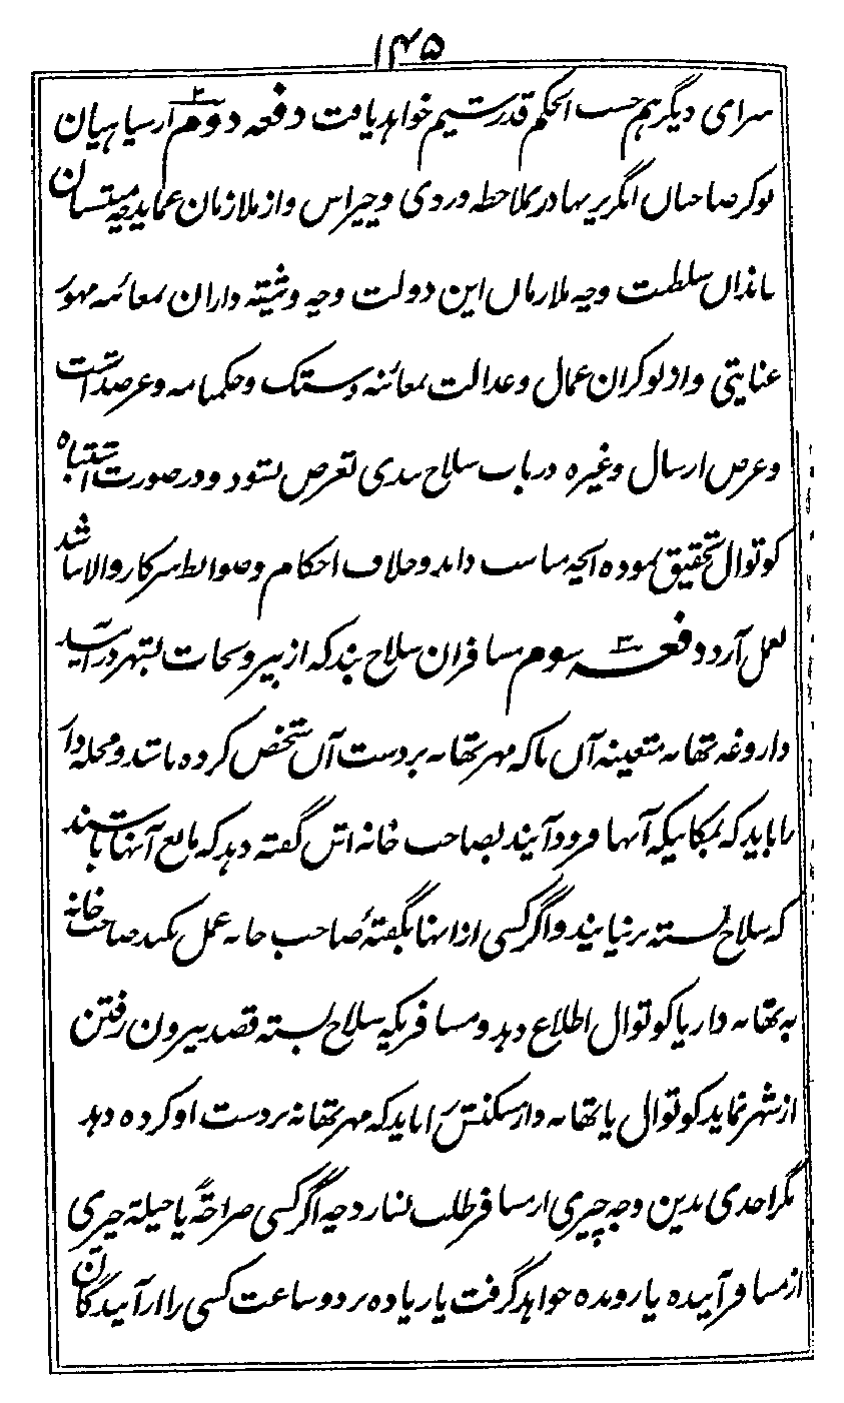 ۱۴۵
سرای دیگر هم حسب الحکم قدر تسیم خواهد یافت دفعه دوم ۲ از سپاهیان
نوکر صاحبان انگریز بهادر بملاحظه وردی و چپراس و از ملازمان عماید چه منتسبان
ماندان سلطنت و چه ملازمان این دولت و چه وثیقه داران بمعائنه مهور
عنایتی و از نوکران عمال و عدالت بمعائنه دستک و حکمنامه و عرضداشت
و عرض ارسال وغیره در باب سلاح بندی تعرض نشود و در صورت اشتباه
کوتوال تحقیق نموده آنچه مناسب داند و خلاف احکام و ضوابط سرکار والا نباشد
بعمل آرد دفعه سوم ۳ مسافران سلاح بند که از بیرونجات بشهر در آیند
داروغه تهانه متعینه آن ناکه مهر تهانه بر دست آن شخص کرده باشد و محله دار
را باید که بمکانیکه آنها فرود آیند بصاحب خانه اش گفته دهد که مانع آنها باشند
که سلاح بسته بر نیایند و اگر کسی از انها بگفتهٔ صاحب خانه عمل نکند صاحب خانه
به تهانه دار یا کوتوال اطلاع دهد و مسافریکه سلاح بسته قصد بیرون رفتن
از شهر نماید کوتوال یا تهانه دار مسکنش را باید که مهر تهانه بر دست او کرده دهد
مگر احدی بدین وجه چیزی از مسافر طلب نسازد چه اگر کسی صراحةً یا حیلة چیزی
از مسافر آینده یا رونده خواهد گرفت یا زیاده بر دو ساعت کسی را از آیندگان